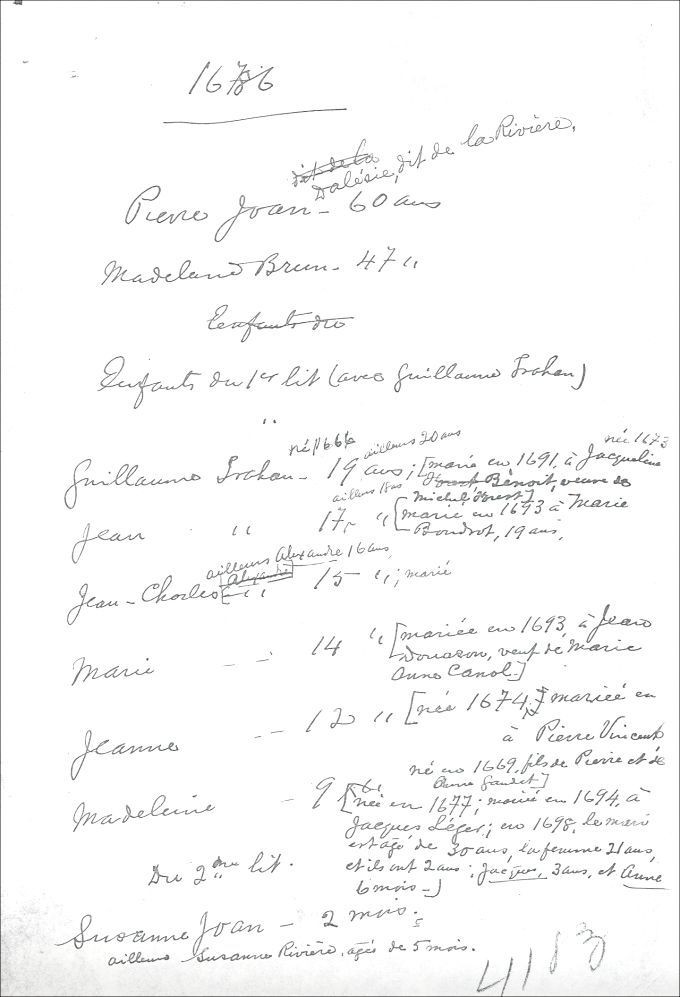 1686
dit de la
Dalésie, dit de la Rivière.
Pierre Joan - 60 ans
Madelaine Brun - 47 "
Eenfants du
Enfants du 1er lit (avec Guillaume Trahan)
"
né 1666 ailleurs 20 ans née 1673
Guillaume Trahan - 19 ans; [marié en 1691, à Jacqueline
Forest Benoit, veuve de
Michel Forest]
ailleurs 18 ans
Jean " 17 " [marié en 1693 à Marie
Boudrot, 19 ans,
ailleurs Alexandre 16 ans,
Jean-Charles [Alexandre] " 15 "; marié
Marie - - 14 " [mariée en 1693, à Jean
, veuf de Marie
Anne Canol.]
Jeanne - - 12 " [née 1674,] mariée en
à Pierre Vincent
né en 1669, fils de Pierre et de
Anne Gaudet]
Madeleine - 9 " [née en 1677; mariée en 1694, à
Jacques Léger; en 1698, le mari
est agé de 30 ans, la femme 21 ans,
et ils ont 2 ans; Jacques, 3 ans, et Anne
6 mois -]
Du 2me lit.
Susanne Joan - 2 mois.
ailleurs Susanne Rivière, agée de 5 mois.